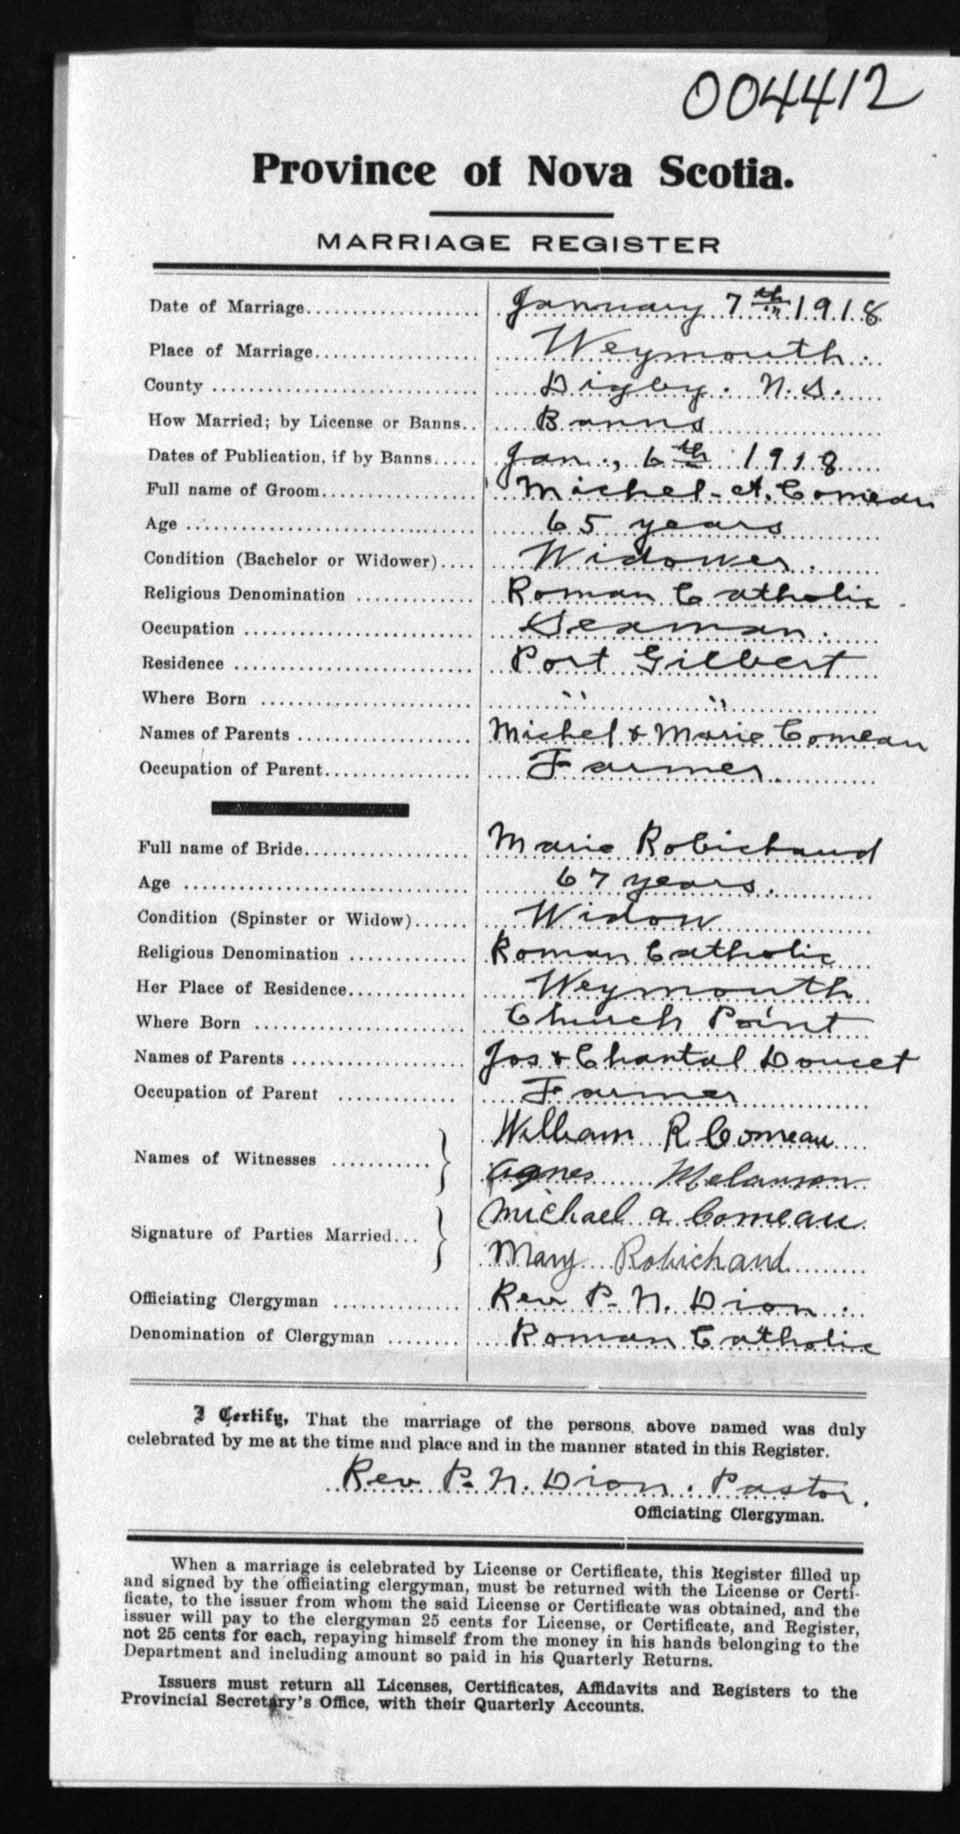 004412
Province of Nova Scotia.
MARRIAGE REGISTER
Date of Marriage January 7th 1918
Place of Marriage Weymouth.
County Digby. N.S.
How Married; by License or Banns Banns
Dates of Publication, if by Banns Jan., 6th 1918
Full name of Groom Michel A. Comeau
Age 65 years
Condition (Bachelor or Widower) Widower.
Religious Denomination Roman Catholic.
Occupation Seaman.
Residence Port Gilbert
Where Born " "
Names of Parents Michel & Marie Comeau
Occupation of Parent Farmer.
Full name of Bride Marie Robichaud
Age 67 years.
Condition (Spinster or Widow) Widow
Religious Denomination Roman Catholic
Her Place of Residence Weymouth
Where Born Church Point
Names of Parents Jos & Chantal Doucet
Occupation of Parent Farmer
William R Comeau
Names of Witnesses }
Agnes Melanson
Michael a Comeau.
Signature of Parties Married }
Mary Robichaud
Officiating Clergyman Rev P. N. Dion.
Denomination of Clergyman Roman Catholic
I Certify, That the marriage of the persons above named was duly
celebrated by me at the time and place and in the manner stated in this Register.
Rev P. N. Dion. Pastor.
Officiating Clergyman.
When a marriage is celebrated by License or Certificate, this Register filled up
and signed by the officiating clergyman, must be returned with the License or Certi-
ficate, to the issuer from whom the said License or Certificate was obtained, and the
issuer will pay to the clergyman 25 cents for License, or Certificate, and Register,
not 25 cents for each, repaying himself from the money in his hands belonging to the
Department and including amount so paid in his Quarterly Returns.
Issuers must return all Licenses, Certificates, Affidavits and Registers to the
Provincial Secretary's Office, with their Quarterly Accounts.